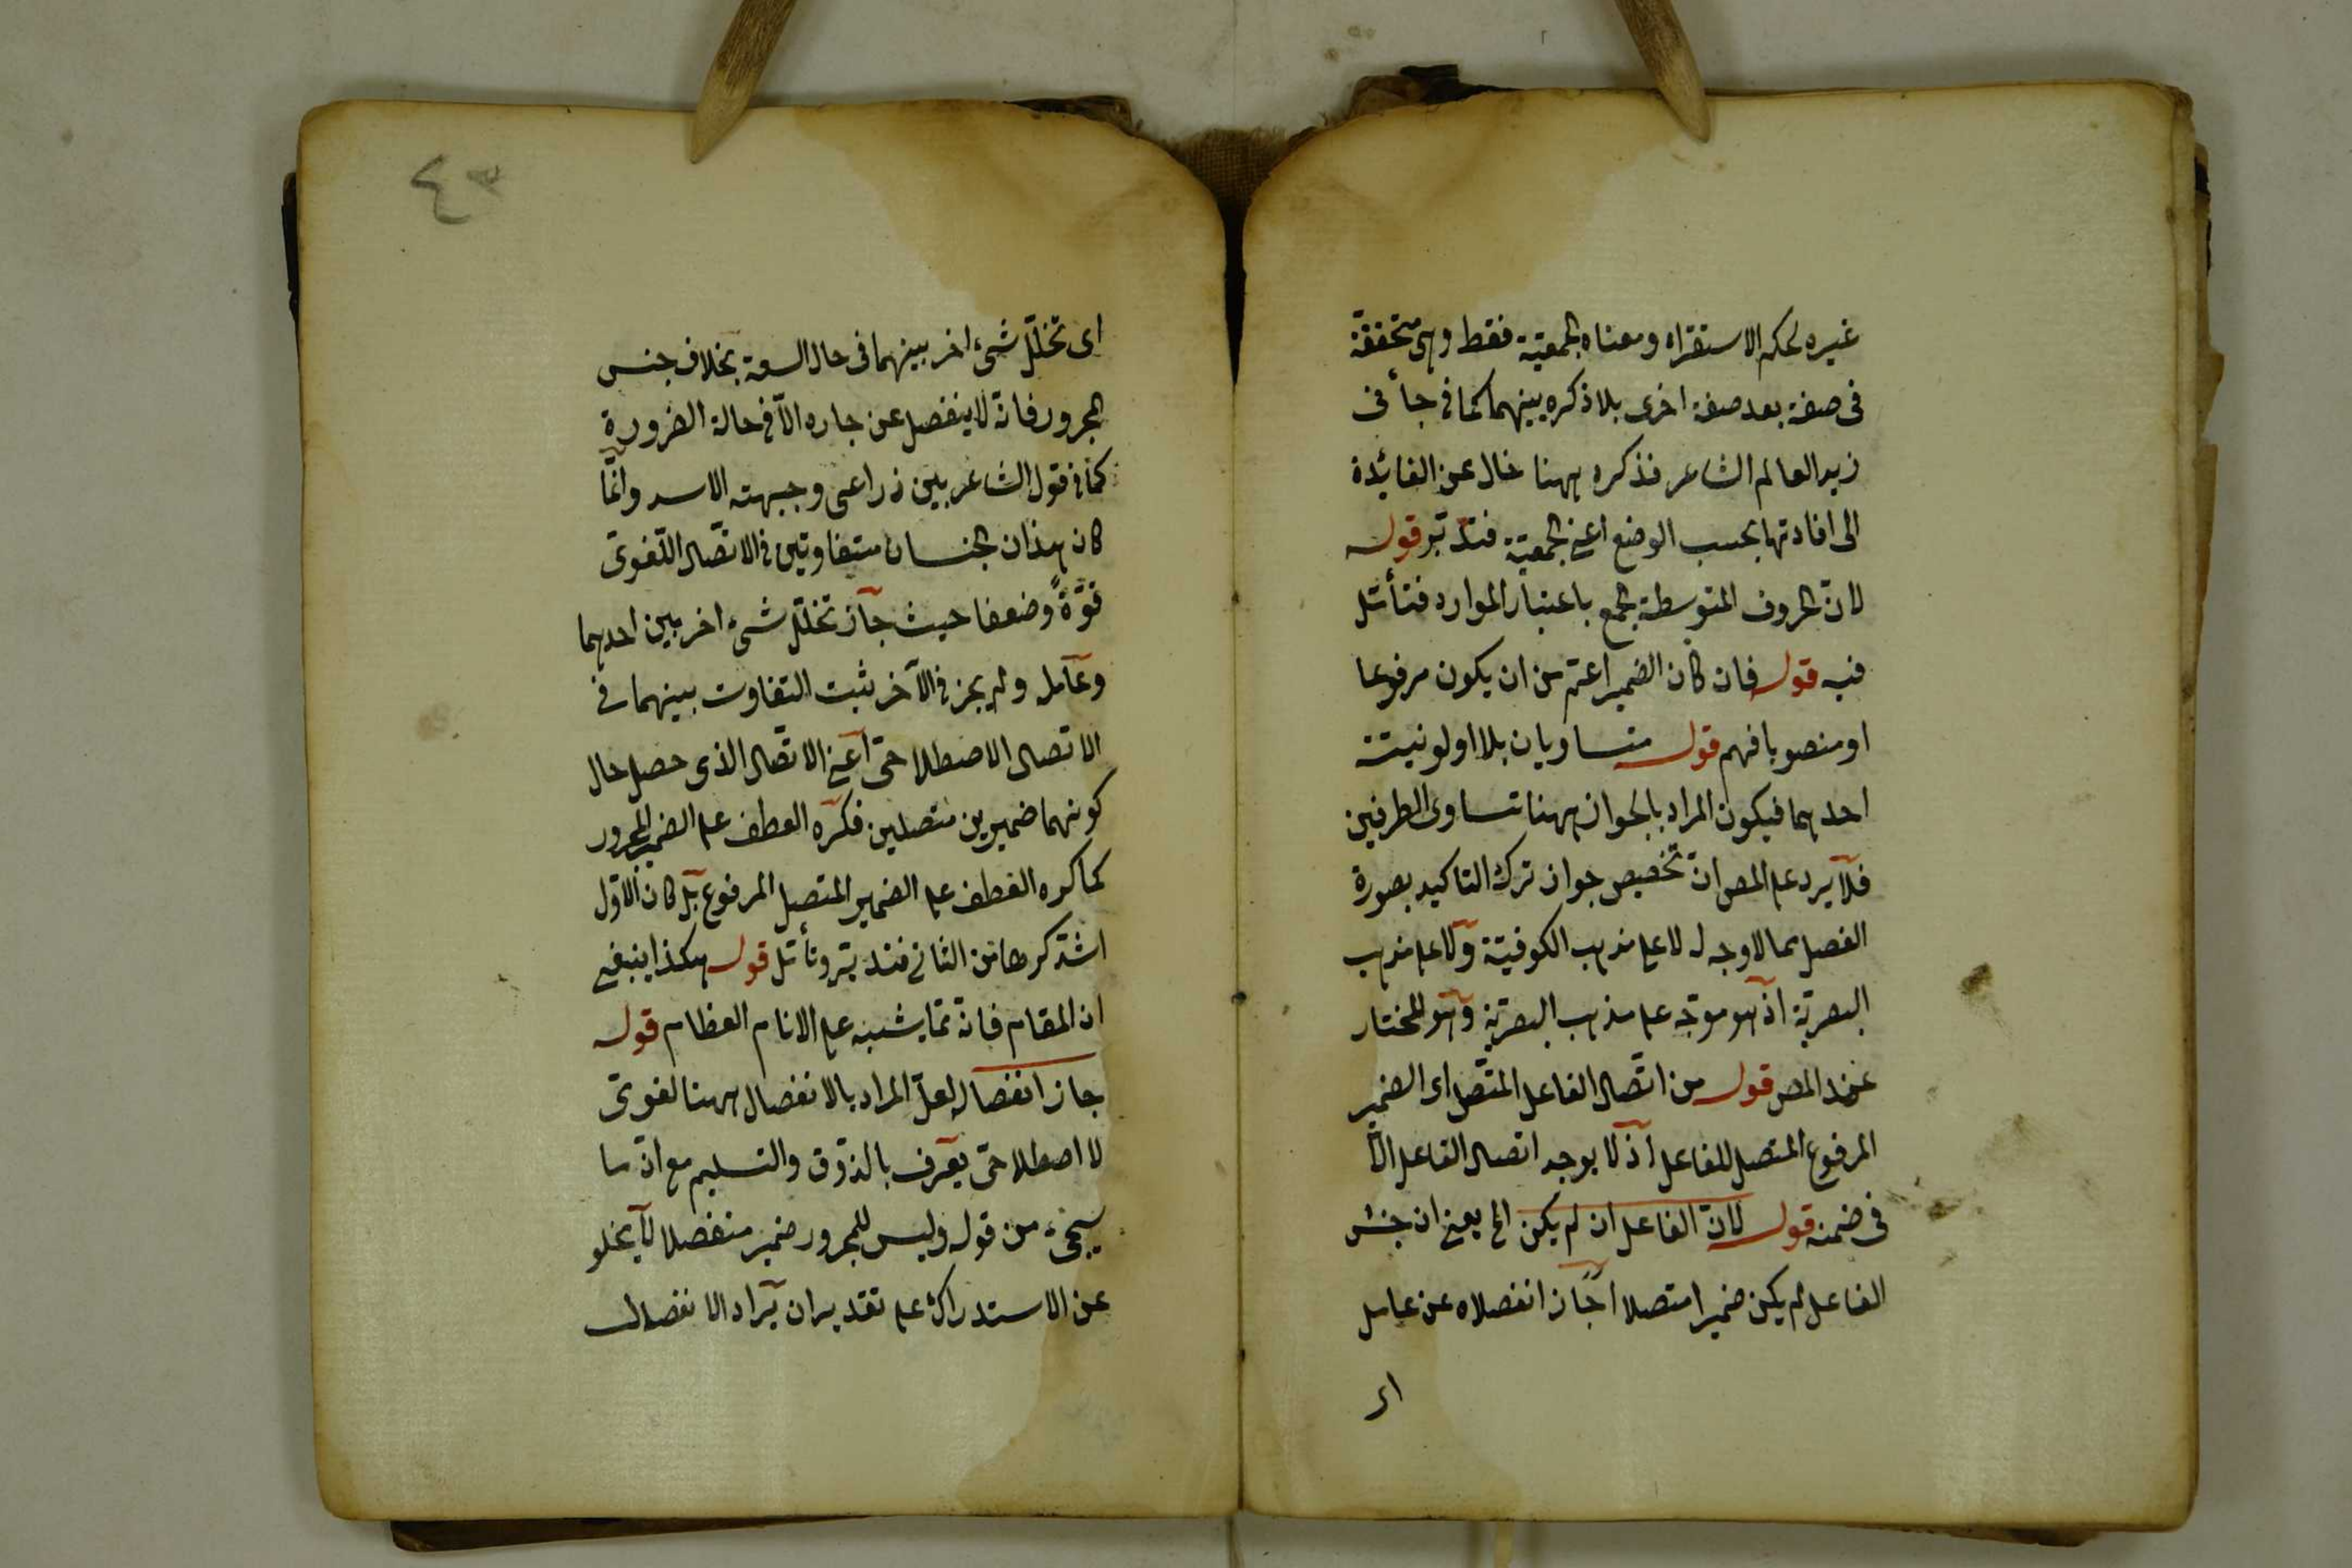 غيره بحكم الاستقراء ومعناه الجمعية فقط وهى متحققة
فى صفة بعد صفة اخرى بلا ذكره بينهما كما فى جاءنى
زيد العالم الشاعر فذكره ههنا خال عن الفائدة
الى افادتها بحسب الوضع اعنى الجمعية فتدبر قوله
لان الحروف المتوسطة الجمع باعتبار الموارد فتأمل
فيه قوله فان كان الضمير اعم من ان يكون مرفوعا
او منصوبا فهم قوله متساويان بلا اولوية
احدهما فيكون المراد بالجواز ههنا تساوى الطرفين
فلا يرد على المص ان تخصيص جواز ترك التاكيد بصورة
الفصل مما لا وجه له لا على مذهب الكوفية ولا على مذهب
البصرية اذ هو موجّه على مذهب البصرية وهو المختار
عند المص قوله من اتصال الفاعل المتصل اى الضمير
المرفوع المتصل للفاعل اذ لا يوجد اتصال الفاعل الا
فى ضمنه قوله لان الفاعل ان لم يكن الخ يعنى ان جنس
الفاعل لم يكن ضميرا متصلا جاز انفصاله عن عامل
اى
٤٣
اى تخلّل شىء اخر بينهما فى حال السعة بخلاف جنس
المجرور فانه لا ينفصل عن جاره الّا فى حالة الضرورة
كما فى قول الشاعر بين ذراعى وجبهته الاسد وانّما
كان هذان الجنسان متفاوتين فى الاتصال اللغوىّ
قوّةً وضعفا حيث جاز تخلّل شىء اخر بين احدهما
وعامل ولم يجز فى الآخر ثبت التفاوت بينهما فى
الاتصال الاصطلاحى اعنى الاتصال الذى حصل حال
كونهما ضميرين متصلين فكره العطف على الضمير المجرور
كما كره العطف على الضمير المتصل المرفوع بل كان الاوّل
اشد كرها من الثانى فتدبر وتأمّل قوله هكذا ينبغى
ان المقام فانه مما يشتبه على الانام العظام قوله
جاز انفصاله لعلّ المراد بالانفصال ههنا لغوىّ
لا اصطلاحى يعرف بالذوق والتسليم مع ان ما
سيجىء من قوله وليس للمجرور ضمير منفصلا لا يخلو
عن الاستدراك على تقدير ان يراد الانفصال